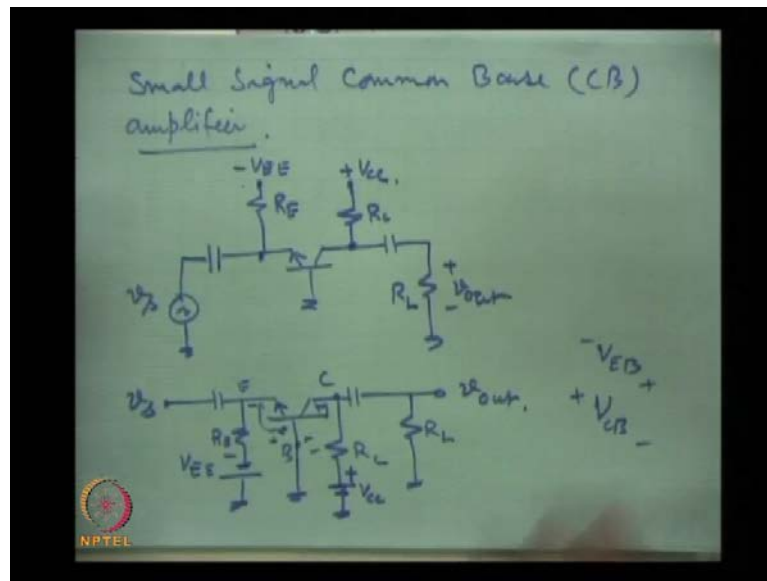 Small Signal Common Base (CB)
amplifier.
-VEE +VCC.
RE RC
vs RL + vout -
vs E C vout.
RE B RC RL
VEE - + VCC
- VEB +
+ VCB -
NPTEL